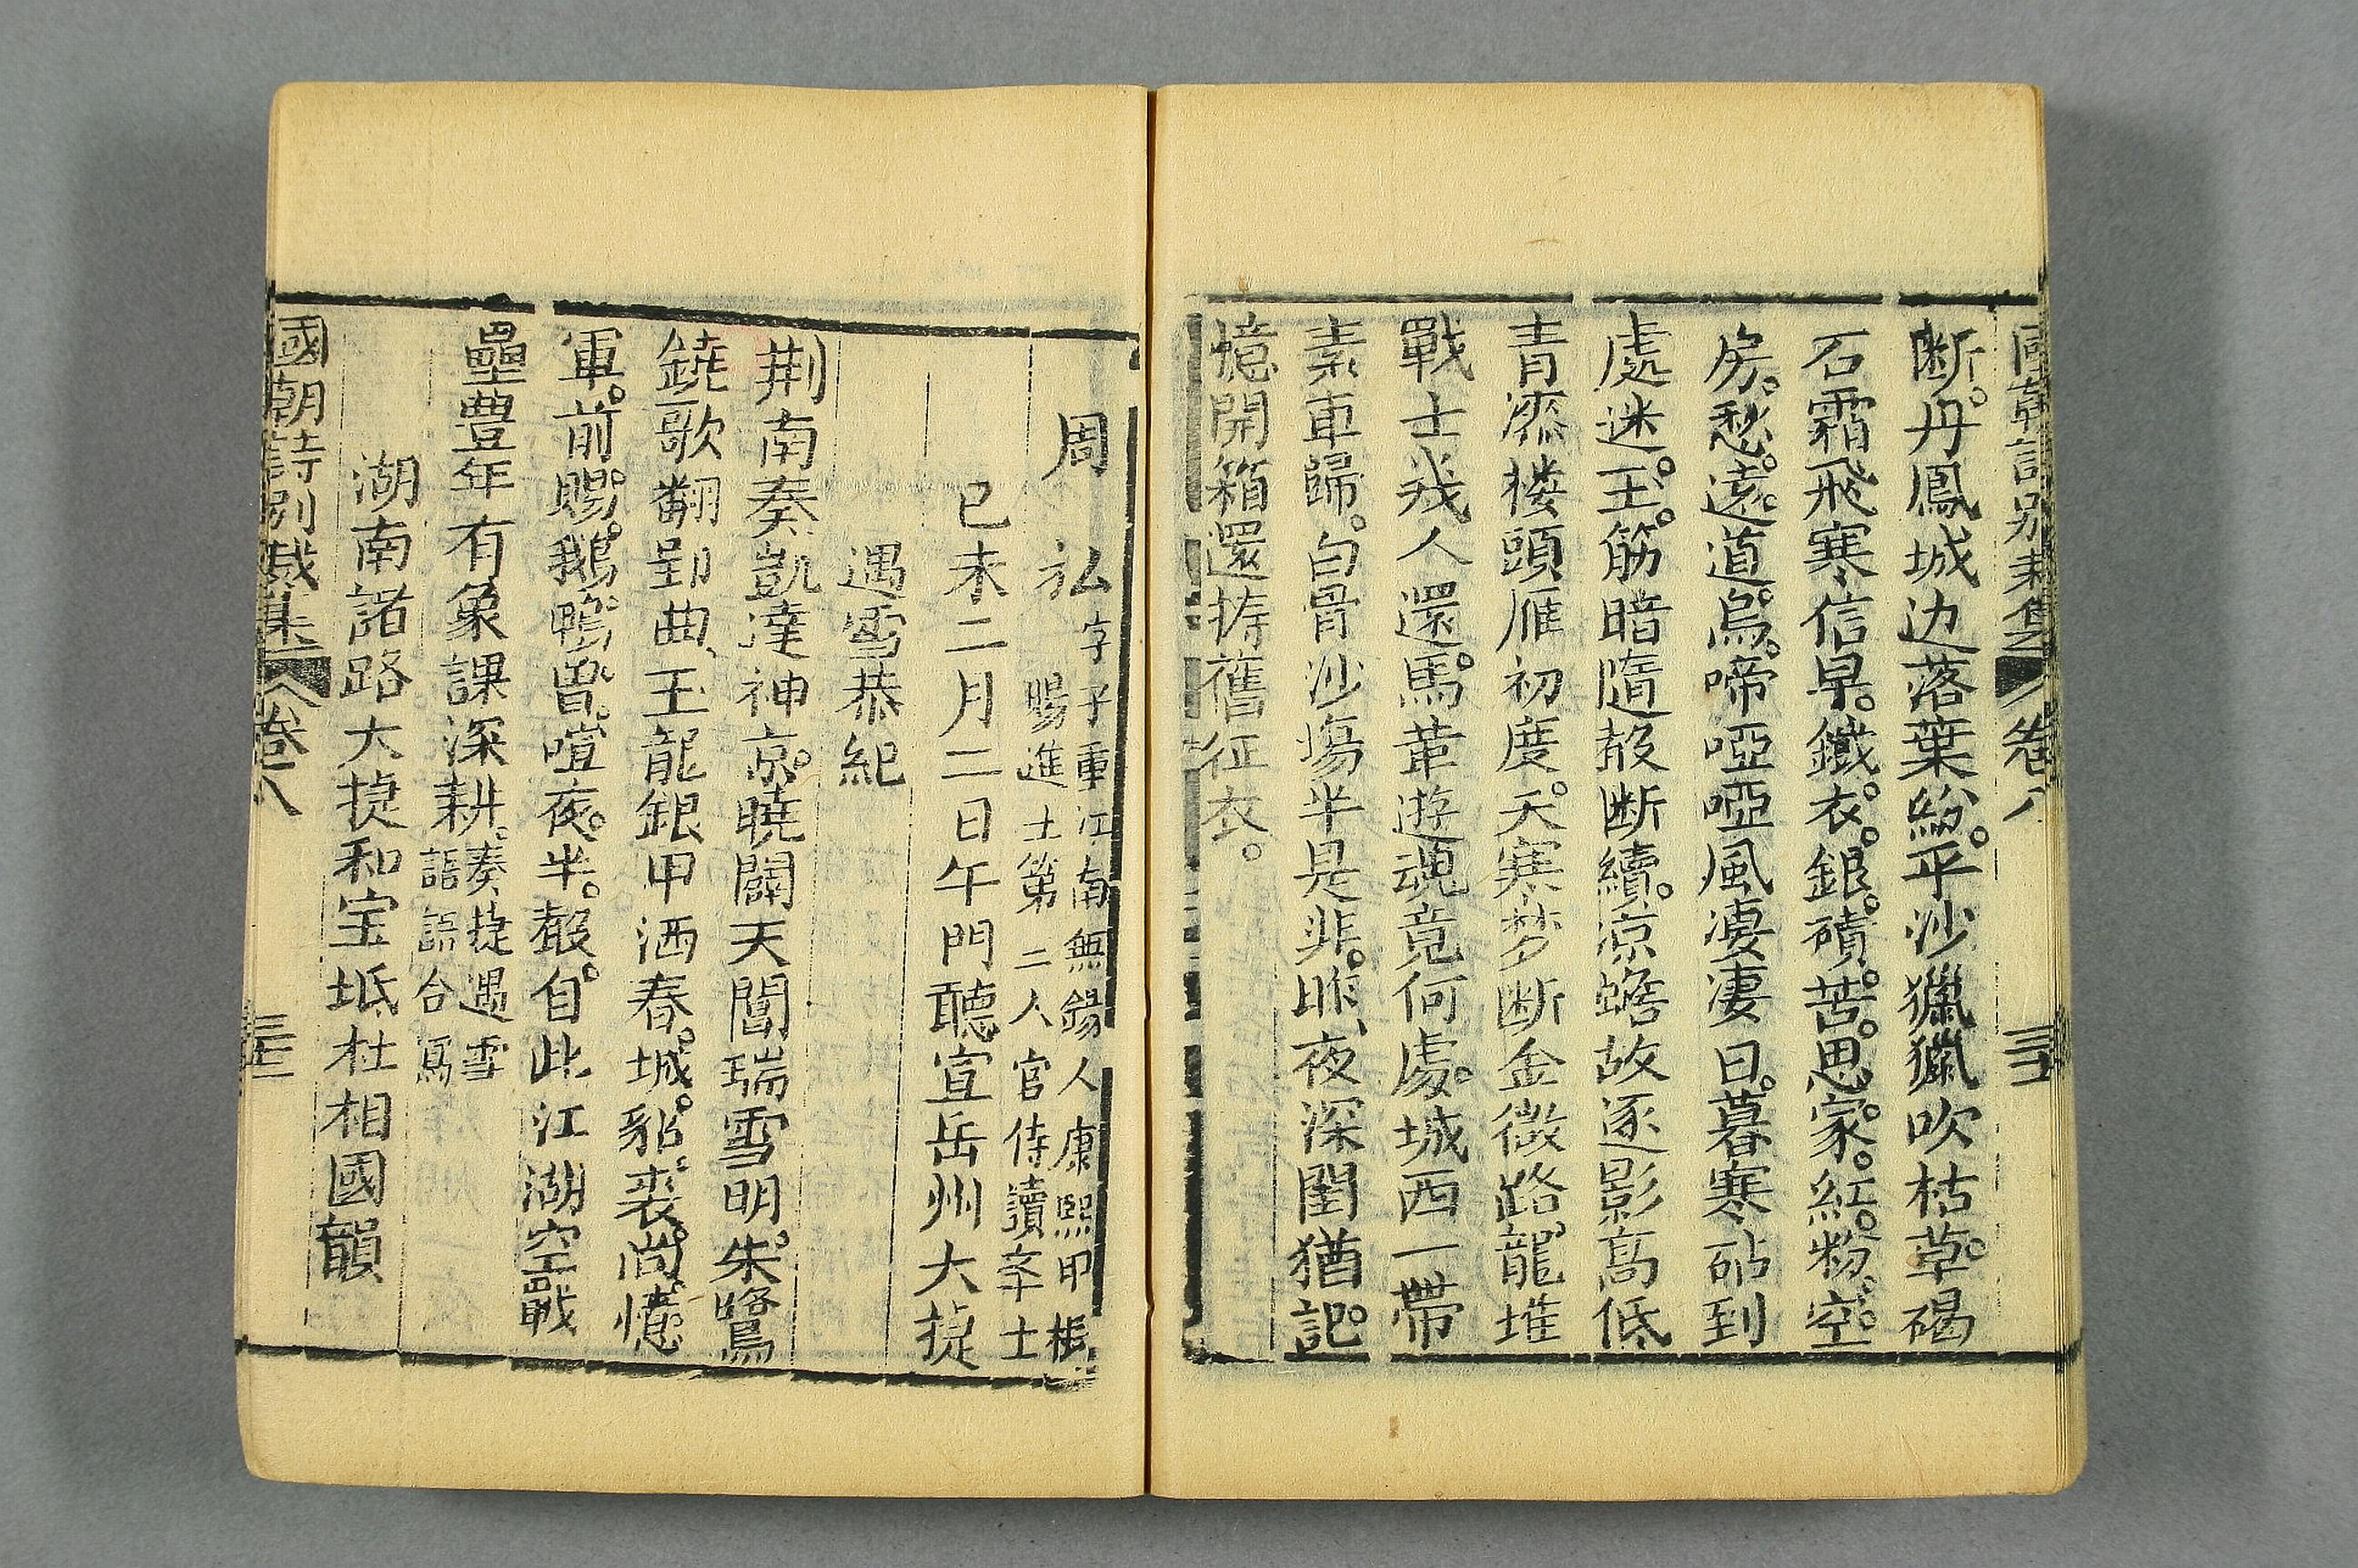 國朝詩別裁集 卷八 三十
断。丹鳳城边落葉紛。平沙獵獵吹枯草。碣
石霜飛寒信早。鐵衣。銀磧。苦。思家。紅。粉。空。
房。愁。遠。道。烏。啼啞啞風淒淒日。暮寒砧到
處迷。玉。筋暗隨殽断續。凉蟾故逐影高低
青漆楼頭雁初度。天寒梦断金微路。龍堆
戰士幾人還。馬革遊魂竟何處。城西一帶
素車歸。白骨沙塲半是非。昨、夜深閨猶記。
憶開箱還擣舊征衣。
周弘 字子重江南無錫人康熙甲
賜進士第二人官侍讀學士
已未二月二日午門聽宣岳州大捷
遇雪恭紀
荆南奏凱達神京。曉闢天閶瑞雪明。朱鷺
鐃歌翻到曲、玉龍銀甲洒春。城。貂。裘。尚。憶
軍。前賜。鵝。鴨。曾。喧夜。半。殽自。此江湖空戰
壘豊年有象課深耕。奏捷遇雪
語語合寫
湖南諸路大捷和宝坻杜相國韻
國朝詩別裁集 卷八 三十一